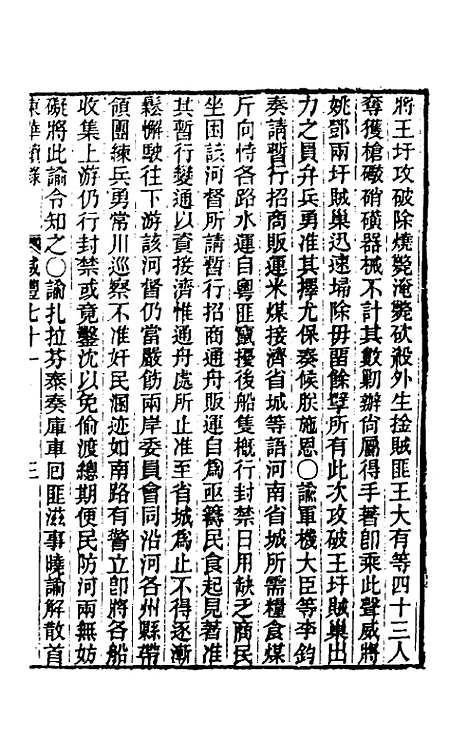 將王圩攻破除燒斃淹斃砍殺外生擒賊匪王大有等四十三人
奪獲槍礮硝磺器械不計其數勦辦尚屬得手著卽乘此聲威將
姚鄧兩圩賊巢迅速埽除毋畱餘孽所有此次攻破王圩賊巢出
力之員弁兵勇准其擇尤保奏候朕施恩〇諭軍機大臣等李鈞
奏請暫行招商販運米煤接濟省城等語河南省城所需糧食煤
斤向恃各路水運自粵匪竄擾後船隻槪行封禁日用缺乏商民
坐困該河督所請暫行招商通舟販運自爲亟籌民食起見著准
其暫行變通以資接濟惟通舟處所止准至省城爲止不得逐漸
鬆懈駛往下游該河督仍當嚴飭兩岸委員會同沿河各州縣帶
領團練兵勇常川巡察不准奸民溷迹如南路有警立卽將各船
收集上游仍行封禁或竟鑿沈以免偷渡總期便民防河兩無妨
礙將此諭令知之〇諭扎拉芬泰奏庫車回匪滋事曉諭解散首
東華續錄 咸豐七十一 三